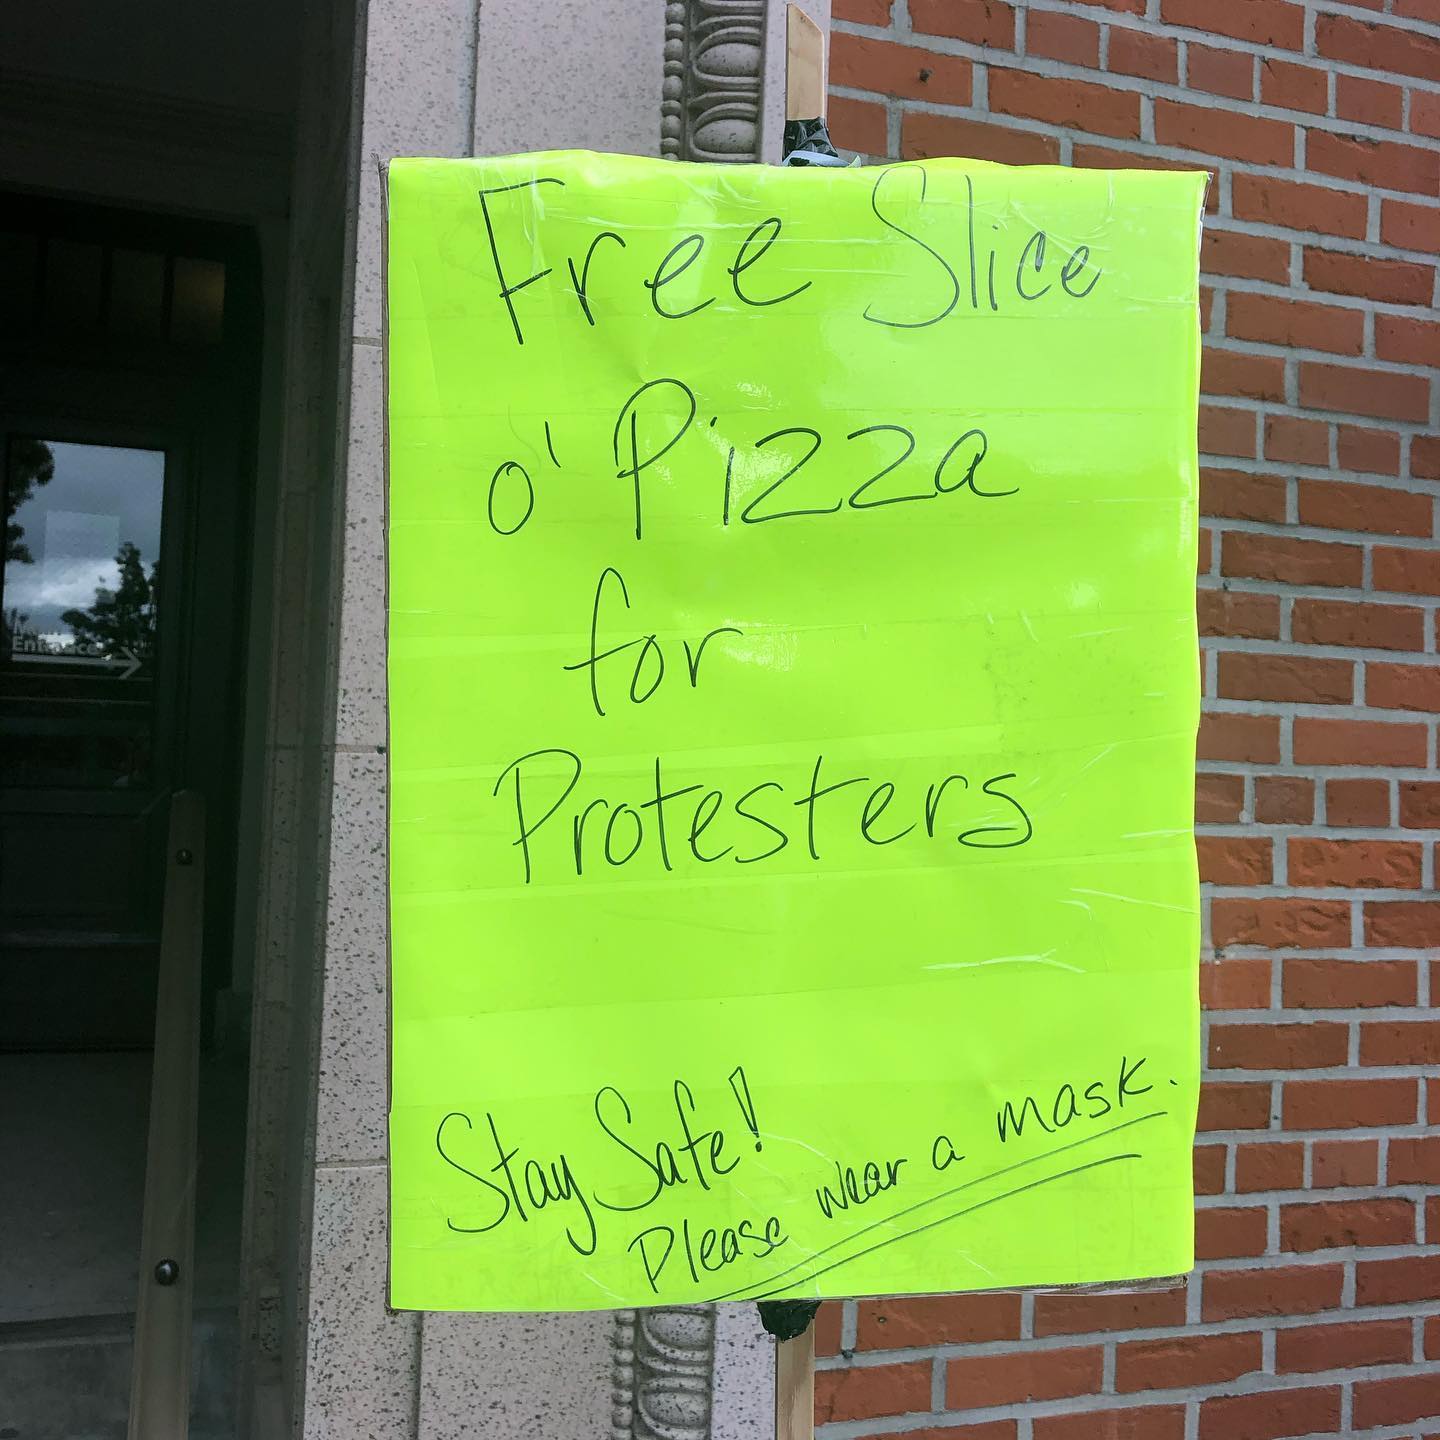 Free Slice
o' Pizza
for
Protesters
Stay Safe!
Please wear a mask.
Entrance